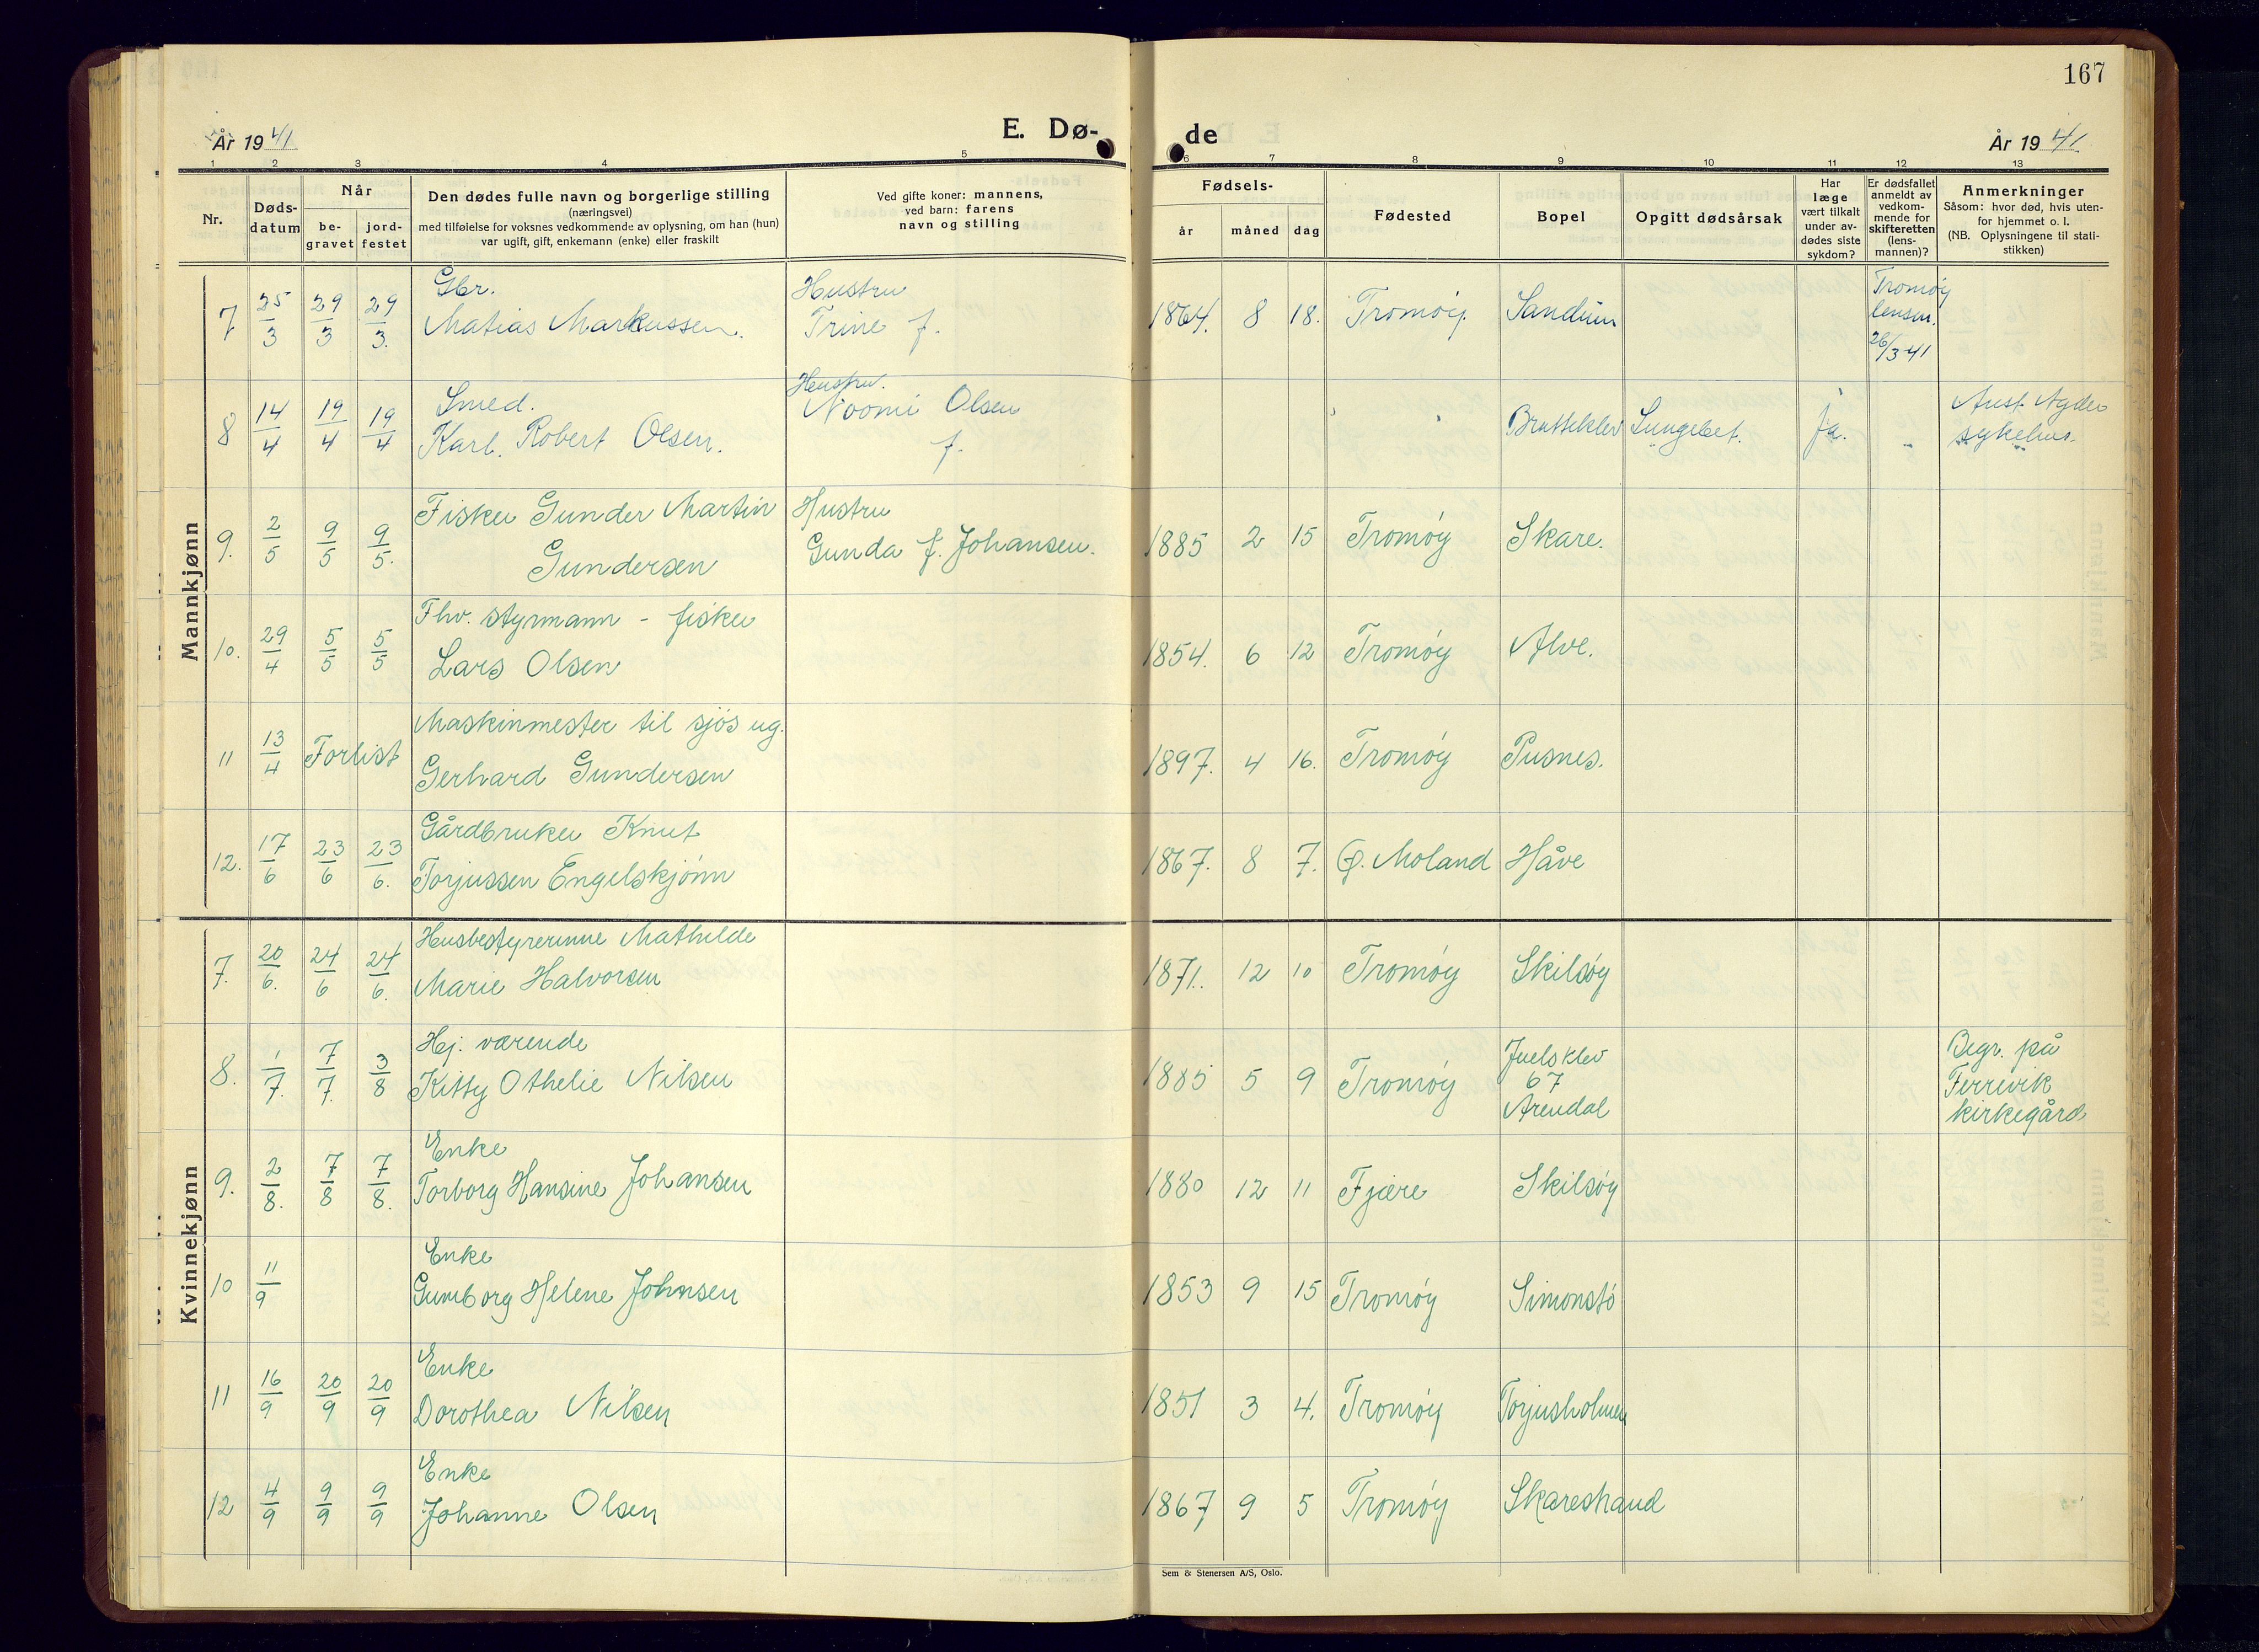 167
År 1941
E. Dø-
de
År 1941
1 2 3 4 5 6 7 8 9 10 11 12 13
Nr.
Døds-
datum
Når
be-
gravet
jord-
festet
Den dødes fulle navn og borgerlige stilling
(næringsvei)
med tilføielse for voksnes vedkommende av oplysning, om han (hun)
var ugift, gift, enkemann (enke) eller fraskilt
Ved gifte koner: mannens,
ved barn: farens
navn og stilling
Fødsels-
år måned dag
Fødested
Bopel
Opgitt dødsårsak
Har
læge
vært tilkalt
under av-
dødes siste
sykdom?
Er dødsfallet
anmeldt av
vedkom-
mende for
skifteretten
(lens-
mannen)?
Anmerkninger
Såsom: hvor død, hvis uten-
for hjemmet o. l.
(NB. Oplysningene til stati-
stikken)
Mannkjønn
7 25/3 29/3 29/3. Gbr.
Matias Markussen.
Hustru
Trine f.
1864. 8 18. Tromøy. Sandum
Tromøy
lensm.
26/3 41
8 14/4 19/4 19/4 Smed.
Karl. Robert Olsen.
Hustru.
Noomi Olsen
f.
Bratteklev Lungebet. ja. -
Aust Agder
sykehus.
9. 2/5 9/5 9/5. Fisker Gunder Martin
Gundersen
Hustru
Gunda f. Johansen.
1885 2 15 Tromøy Skare.
10. 29/4 5/5 5/5 Fhv. styrmann - fisker
Lars Olsen
1854. 6 12 Tromøy Alve.
11 13/4 Forlist Maskinmester til sjøs ug.
Gerhard Gundersen
1897. 4 16. Tromøy Pusnes.
12. 17/6 23/6 23/6. Gårdbruker Knut
Torjussen Engelskjønn
1867. 8 7. Ø. Moland Håve
Kvinnekjønn
7. 20/6. 24/6 24/6. Husbestyrerinne Mathilde
Marie Halvorsen
1871. 12 10 Tromøy Skilsøy
8. 1/7. 7/7. 3/8 Hj. værende
Kitty Othelie Nilsen
1885 5 9 Tromøy Juelsklev
67
Arendal
Begr. på
Ferrevik
kirkegård
9. 2/8. 7/8 7/8. Enke
Torborg Hansine Johansen
1880 12 11 Fjære Skilsøy
10 11/9 Enke
Gumborg Helene Johnsen
1853 9 15 Tromøy Simonstø
11 16/9 20/9 20/9 Enke
Dorothea Nilsen
1851 3 4. Tromøy Torjusholmen
12 4/9 9/9 9/9 Enke
Johanne Olsen
1867 9 5 Tromøy Skarestrand
Sem & Stenersen A/S, Oslo.